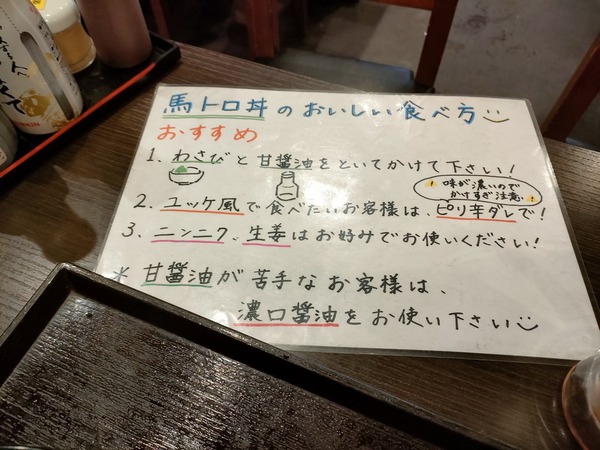 馬トロ丼のおいしい食べ方
おすすめ
1. わさびと甘醤油をといてかけて下さい!
味が濃いので
かけすぎ注意
2. ユッケ風で食べたいお客様は、ピリ辛ダレで!
3. ニンニク、生姜はお好みでお使いください!
* 甘醤油が苦手なお客様は、
濃口醤油をお使い下さい